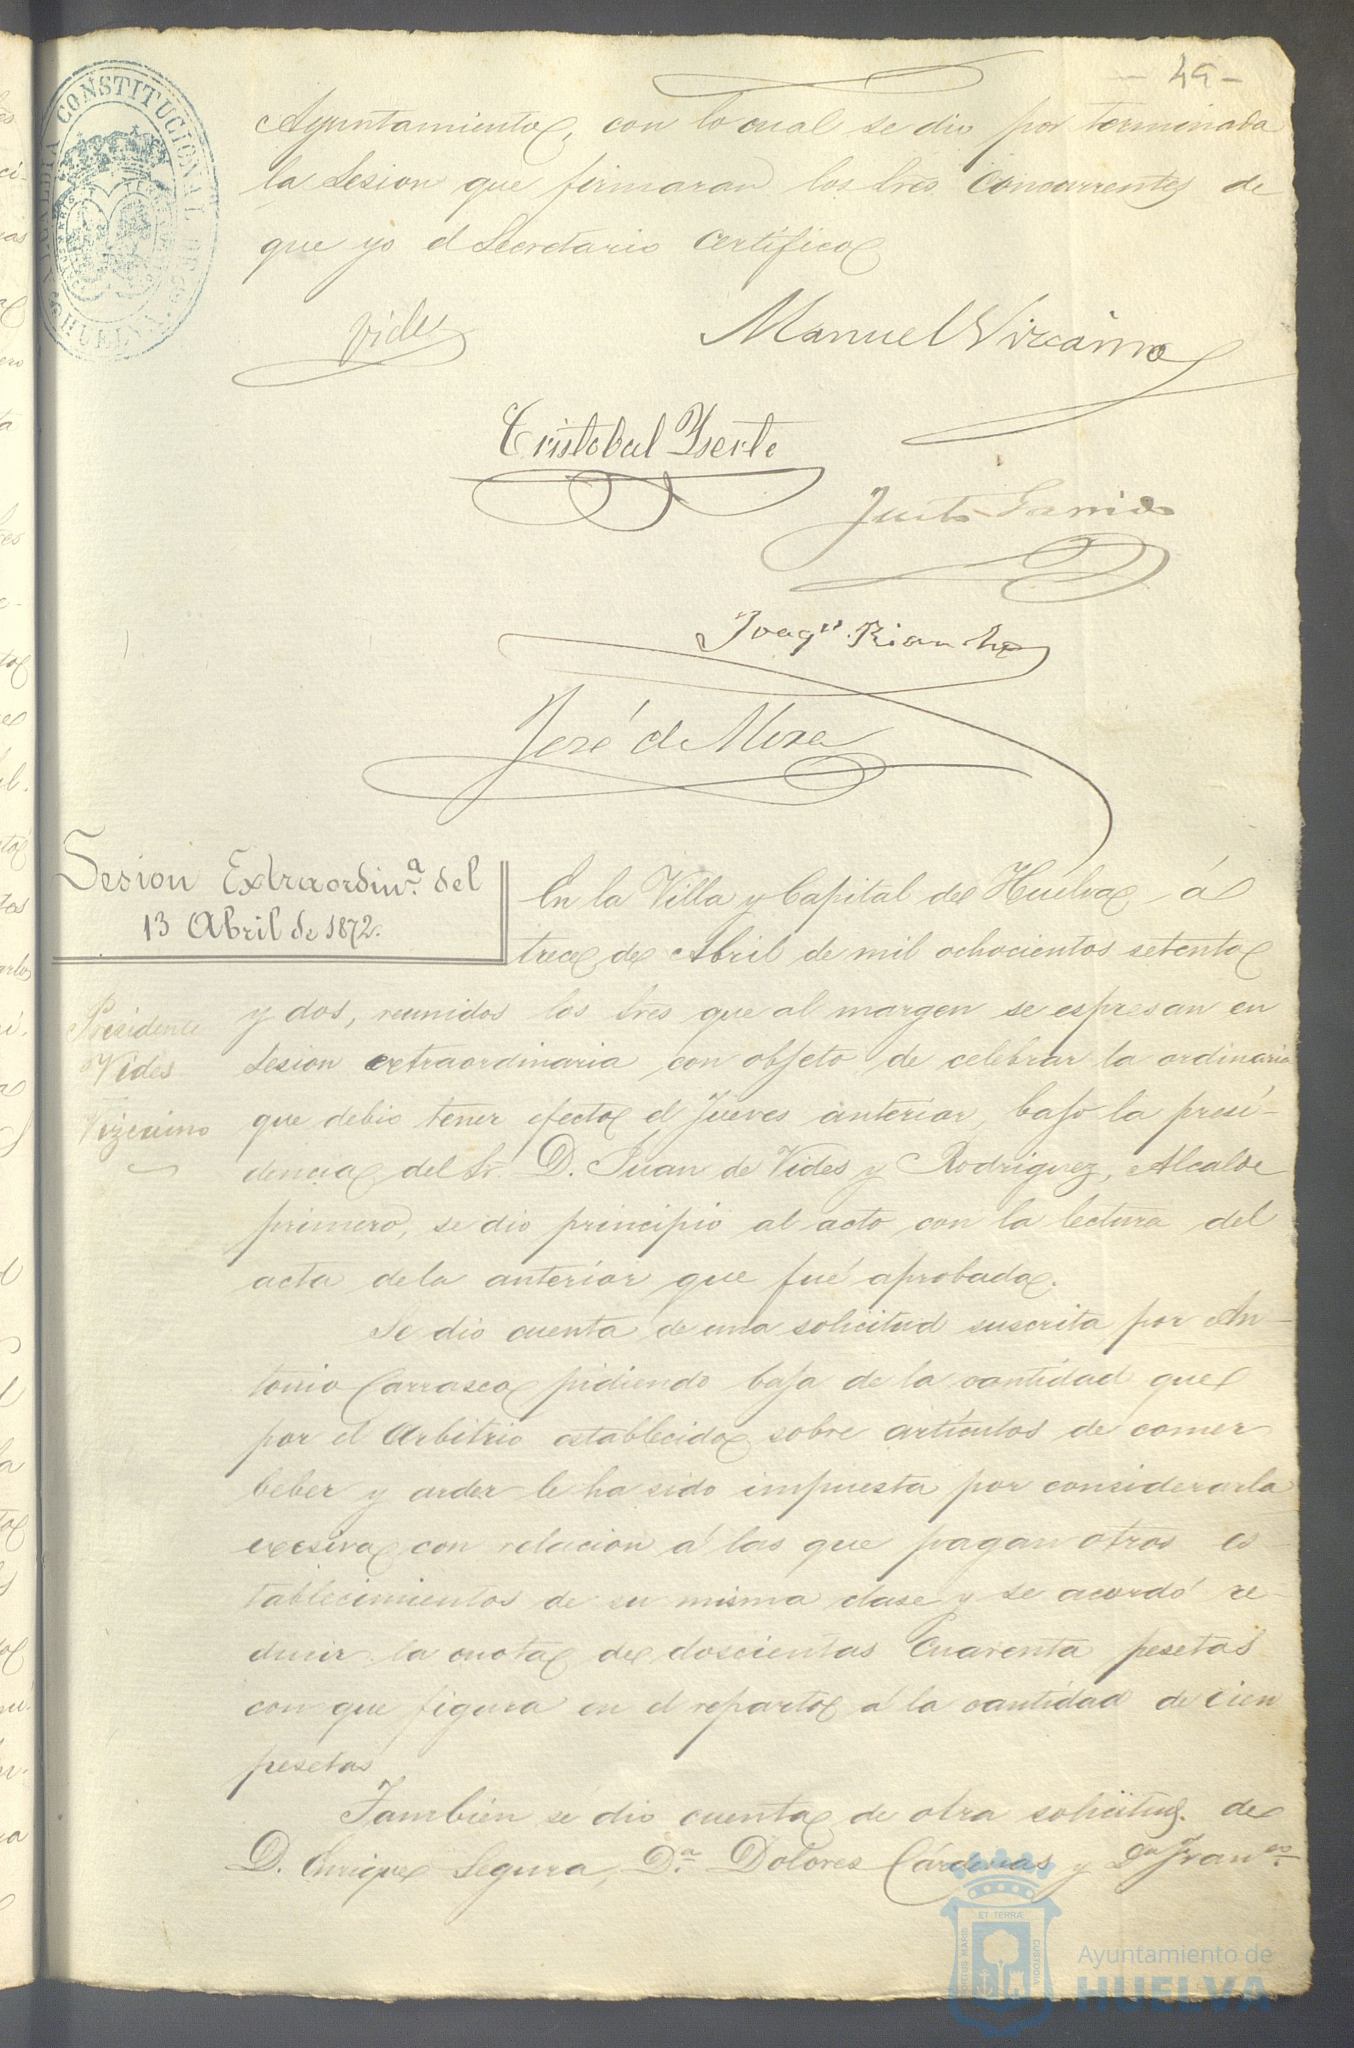 - 49 -
ALCALDIA CONSTITUCIONAL DE LA VILLA
HUELVA
Ayuntamiento, con lo cual se dio por terminada
la Sesion que firmaran los Sres Concurrentes de
que yo el Secretario certifico
Vides
Manuel Vizcaino
Cristobal Yserte
Justo Garrido
Joaqn. Riancho
José de Mora
Sesion Extraordin.a del
13 Abril de 1872.
Presidente
Vides
Vizcaino
En la Villa y Capital de Huelva á
trece de Abril de mil ochocientos setenta
y dos, reunidos los Sres que al margen se espresan en
Sesion extraordinaria con objeto de celebrar la ordinaria
que debió tener efecto el Jueves anterior, bajo la presi-
dencia del Sr. D. Juan de Vides y Rodriguez, Alcalde
primero, se dio principio al acto con la lectura del
acta de la anterior que fué aprobada.
Se dio cuenta de una solicitud suscrita por An-
tonio Carrasco pidiendo baja de la cantidad que
por el Arbitrio establecido sobre articulos de comer
beber y arder le ha sido impuesta por considerarla
excesiva con relacion á las que pagan otros es-
tablecimientos de su misma clase y se acordó re-
ducir la cuota de doscientas cuarenta pesetas
con que figura en el reparto á la cantidad de cien
pesetas
Tambien se dio cuenta de otra solicitud de
D. Enrique Segura, D.a Dolores Cárdenas y Dn Fran.co
ET TERRÆ
PORTUS MARIS
CUSTODIA
Ayuntamiento de
HUELVA